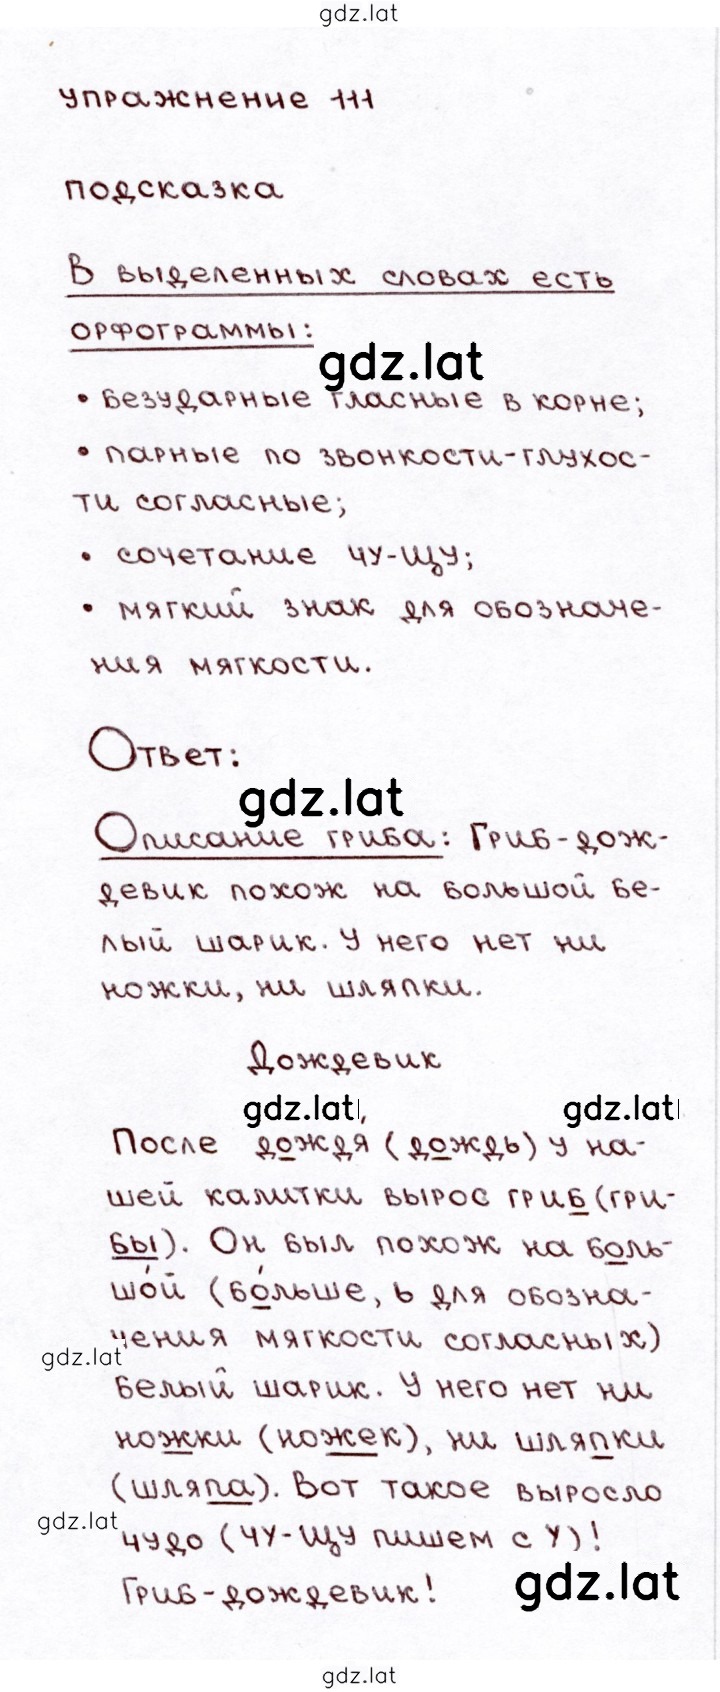 gdz.lat
упражнение 111
подсказка
В выделенных словах есть
орфограммы:
gdz.lat
• безударные гласные в корне;
• парные по звонкости-глухос-
ти согласные;
• сочетание чу-щу;
• мягкий знак для обозначе-
ния мягкости.
Ответ:
gdz.lat
Описание гриба: Гриб-дож-
девик похож на большой бе-
лый шарик. У него нет ни
ножки, ни шляпки.
Дождевик
gdz.lat gdz.lat
После дождя (дождь) у на-
шей калитки вырос гриб (гри-
бы). Он был похож на боль-
шо́й (бо́льше, ь для обозна-
чения мягкости согласных)
gdz.lat
белый шарик. У него нет ни
ножки (ножек), ни шляпки
(шляпа). Вот такое выросло
gdz.lat
чудо (чу-щу пишем с у)!
Гриб-дождевик!
gdz.lat
gdz.lat